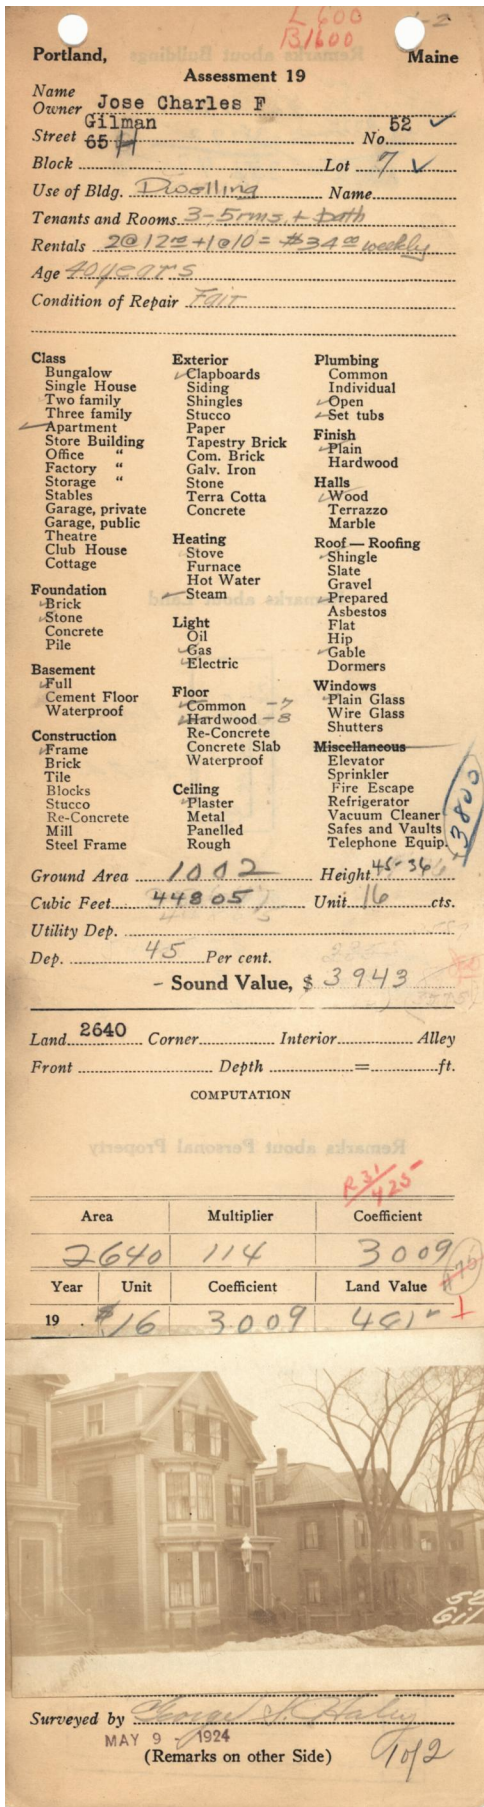 L 600
B1600
Portland, Maine
Assessment 19
Name
Owner Jose Charles F
Gilman
Street 65 H No. 52 ✓
Block Lot 7 ✓
Use of Bldg. Dwelling Name
Tenants and Rooms 3-5 rms. + bath
Rentals 2@12.00 + 1@10 = $34.00 weekly
Age 40 years
Condition of Repair Fair
Class
Bungalow
Single House
Two family
Three family
Apartment
Store Building
Office "
Factory "
Storage "
Stables
Garage, private
Garage, public
Theatre
Club House
Cottage
Foundation
Brick
Stone
Concrete
Pile
Basement
Full
Cement Floor
Waterproof
Construction
Frame
Brick
Tile
Blocks
Stucco
Re-Concrete
Mill
Steel Frame
Exterior
Clapboards
Siding
Shingles
Stucco
Paper
Tapestry Brick
Com. Brick
Galv. Iron
Stone
Terra Cotta
Concrete
Heating
Stove
Furnace
Hot Water
Steam
Light
Oil
Gas
Electric
Floor
Common - 7
Hardwood - 8
Re-Concrete
Concrete Slab
Waterproof
Ceiling
Plaster
Metal
Panelled
Rough
Plumbing
Common
Individual
Open
Set tubs
Finish
Plain
Hardwood
Halls
Wood
Terrazzo
Marble
Roof — Roofing
Shingle
Slate
Gravel
Prepared
Asbestos
Flat
Hip
Gable
Dormers
Windows
Plain Glass
Wire Glass
Shutters
Miscellaneous
Elevator
Sprinkler
Fire Escape
Refrigerator
Vacuum Cleaner
Safes and Vaults
Telephone Equip.
3800
Ground Area 1002 Height 45-36
Cubic Feet 44805 Unit 16 cts.
Utility Dep.
Dep. 45 Per cent.
- Sound Value, $ 3943
Land 2640 Corner Interior Alley
Front Depth = ft.
COMPUTATION
R31/425
Area Multiplier Coefficient
2640 114 3009
Year Unit Coefficient Land Value
19 $16 3009 481
52
Gil
Surveyed by George S. Haley
MAY 9 - 1924
(Remarks on other Side) 1 of 2